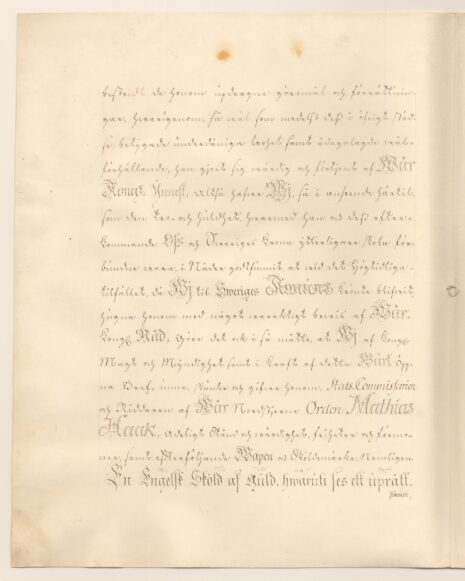 bestridt de honom updragne göremål och förrättnin-
gar, hvarigenom, så wäl som medelst dess i öfrigt städ-
se betygade underdåniga trohet samt ådagalagde wäl-
förhållande, han gjort sig wärdig och förtjent af Wår
Konglig Ynnest, Altså hafwe Wj, så i anseende härtil,
som den tro- och huldhet, hwarmed han och dess efter-
kommande Oss och Sweriges Krona ytterligare skola för-
bundne wara, i Nåder godtfunnit, at wid det högtidliga
tilfället, då Wj til Sweriges Konung krönte blifwit,
hugna honom med något werkeligt bewis af Wår
Kongl. Nåd, Göre det ock i så måtto, at Wj af Kongl.
Magt och Myndighet samt i kraft af detta Wårt öpp-
na bref, unne, skänke och gifwe honom, Stats Commissarien
och Riddaren af Wår Nordstjerne Orden Mathias
Haak, Adeligt Stånd och wärdighet, friheter och förmo-
ner, samt efterföljande Wapen och Sköldemärke, Nemligen
En Engelsk Sköld af Guld, hwaruti ses ett uprätt-
stående,